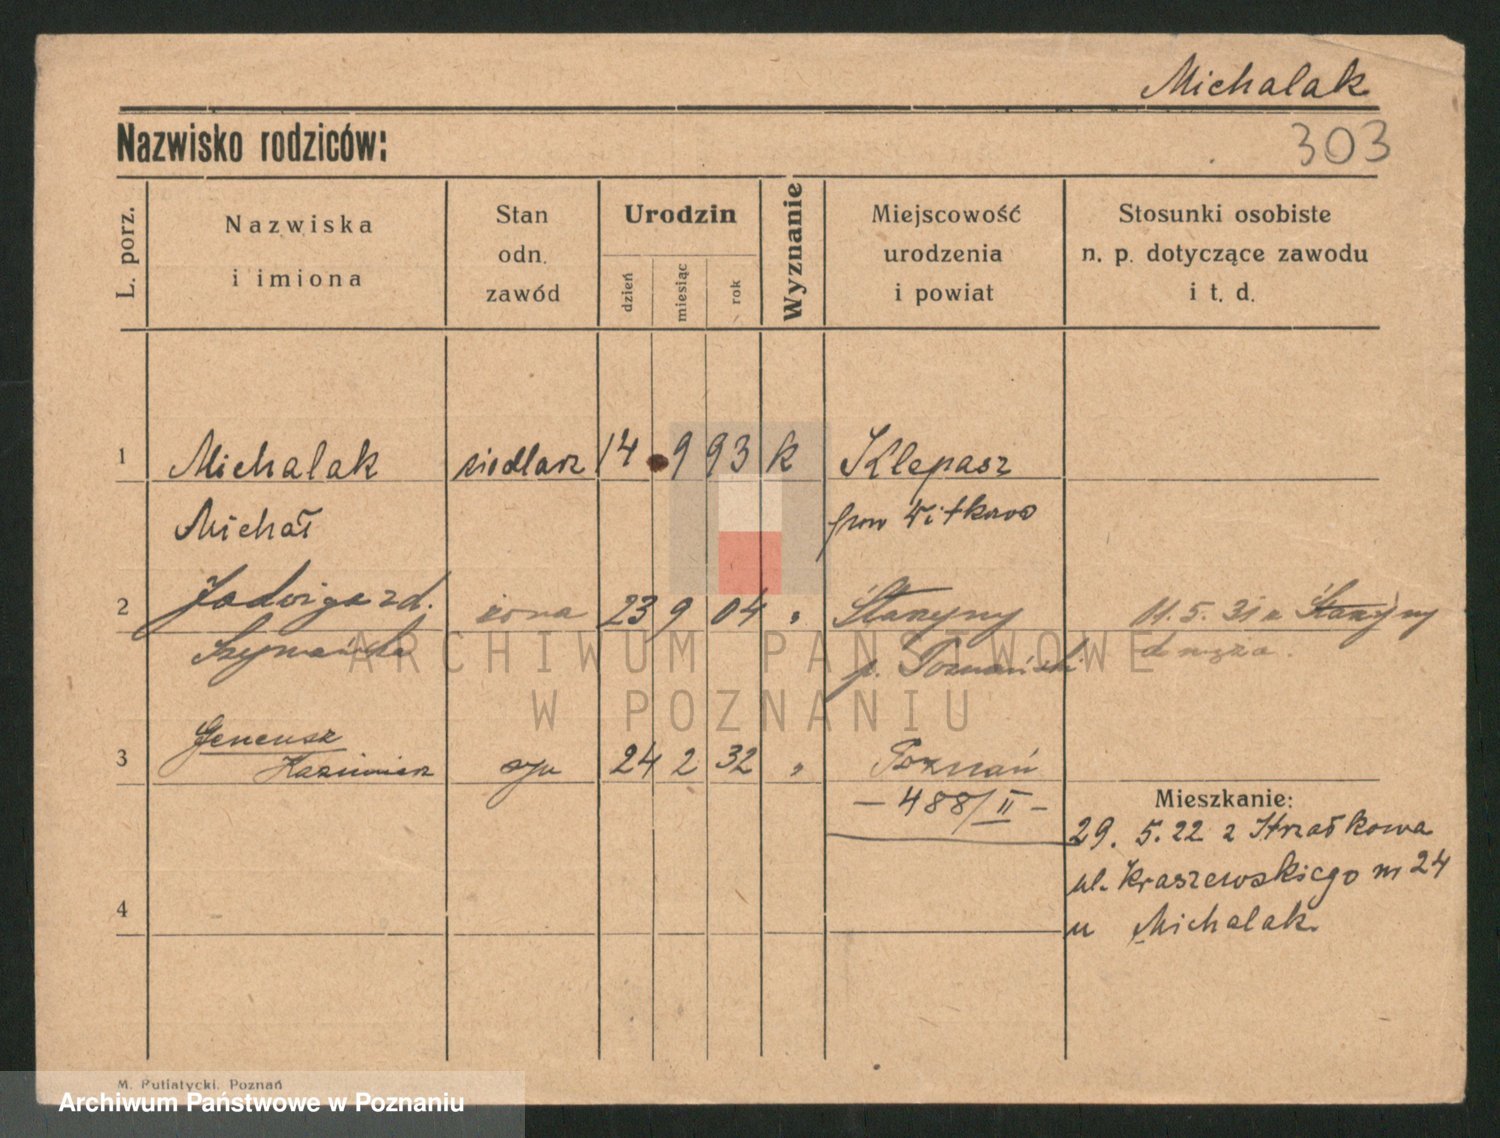 Michalak
303
Nazwisko rodziców:
L. porz.
Nazwiska
i imiona
Stan
odn.
zawód
Urodzin
dzień
miesiąc
rok
Wyznanie
Miejscowość
urodzenia
i powiat
Stosunki osobiste
n. p. dotyczące zawodu
i t. d.
1 Michalak siodlarz 14 9 93 k Klepasz
Michał pow Witkowo
2 Jadwiga zd. żona 23 9 04 " 11.5.31 z
p. Poznański do męża.
3
Kazimierz syn 24 2 32 " Poznań
— 488/II —
Mieszkanie:
29. 5. 22 z Strzałkowa
ul. Kraszewskiego nr 24
4
u Michalak.
ARCHIWUM PAŃSTWOWE
W POZNANIU
M. Putiatycki, Poznań
Archiwum Państwowe w Poznaniu